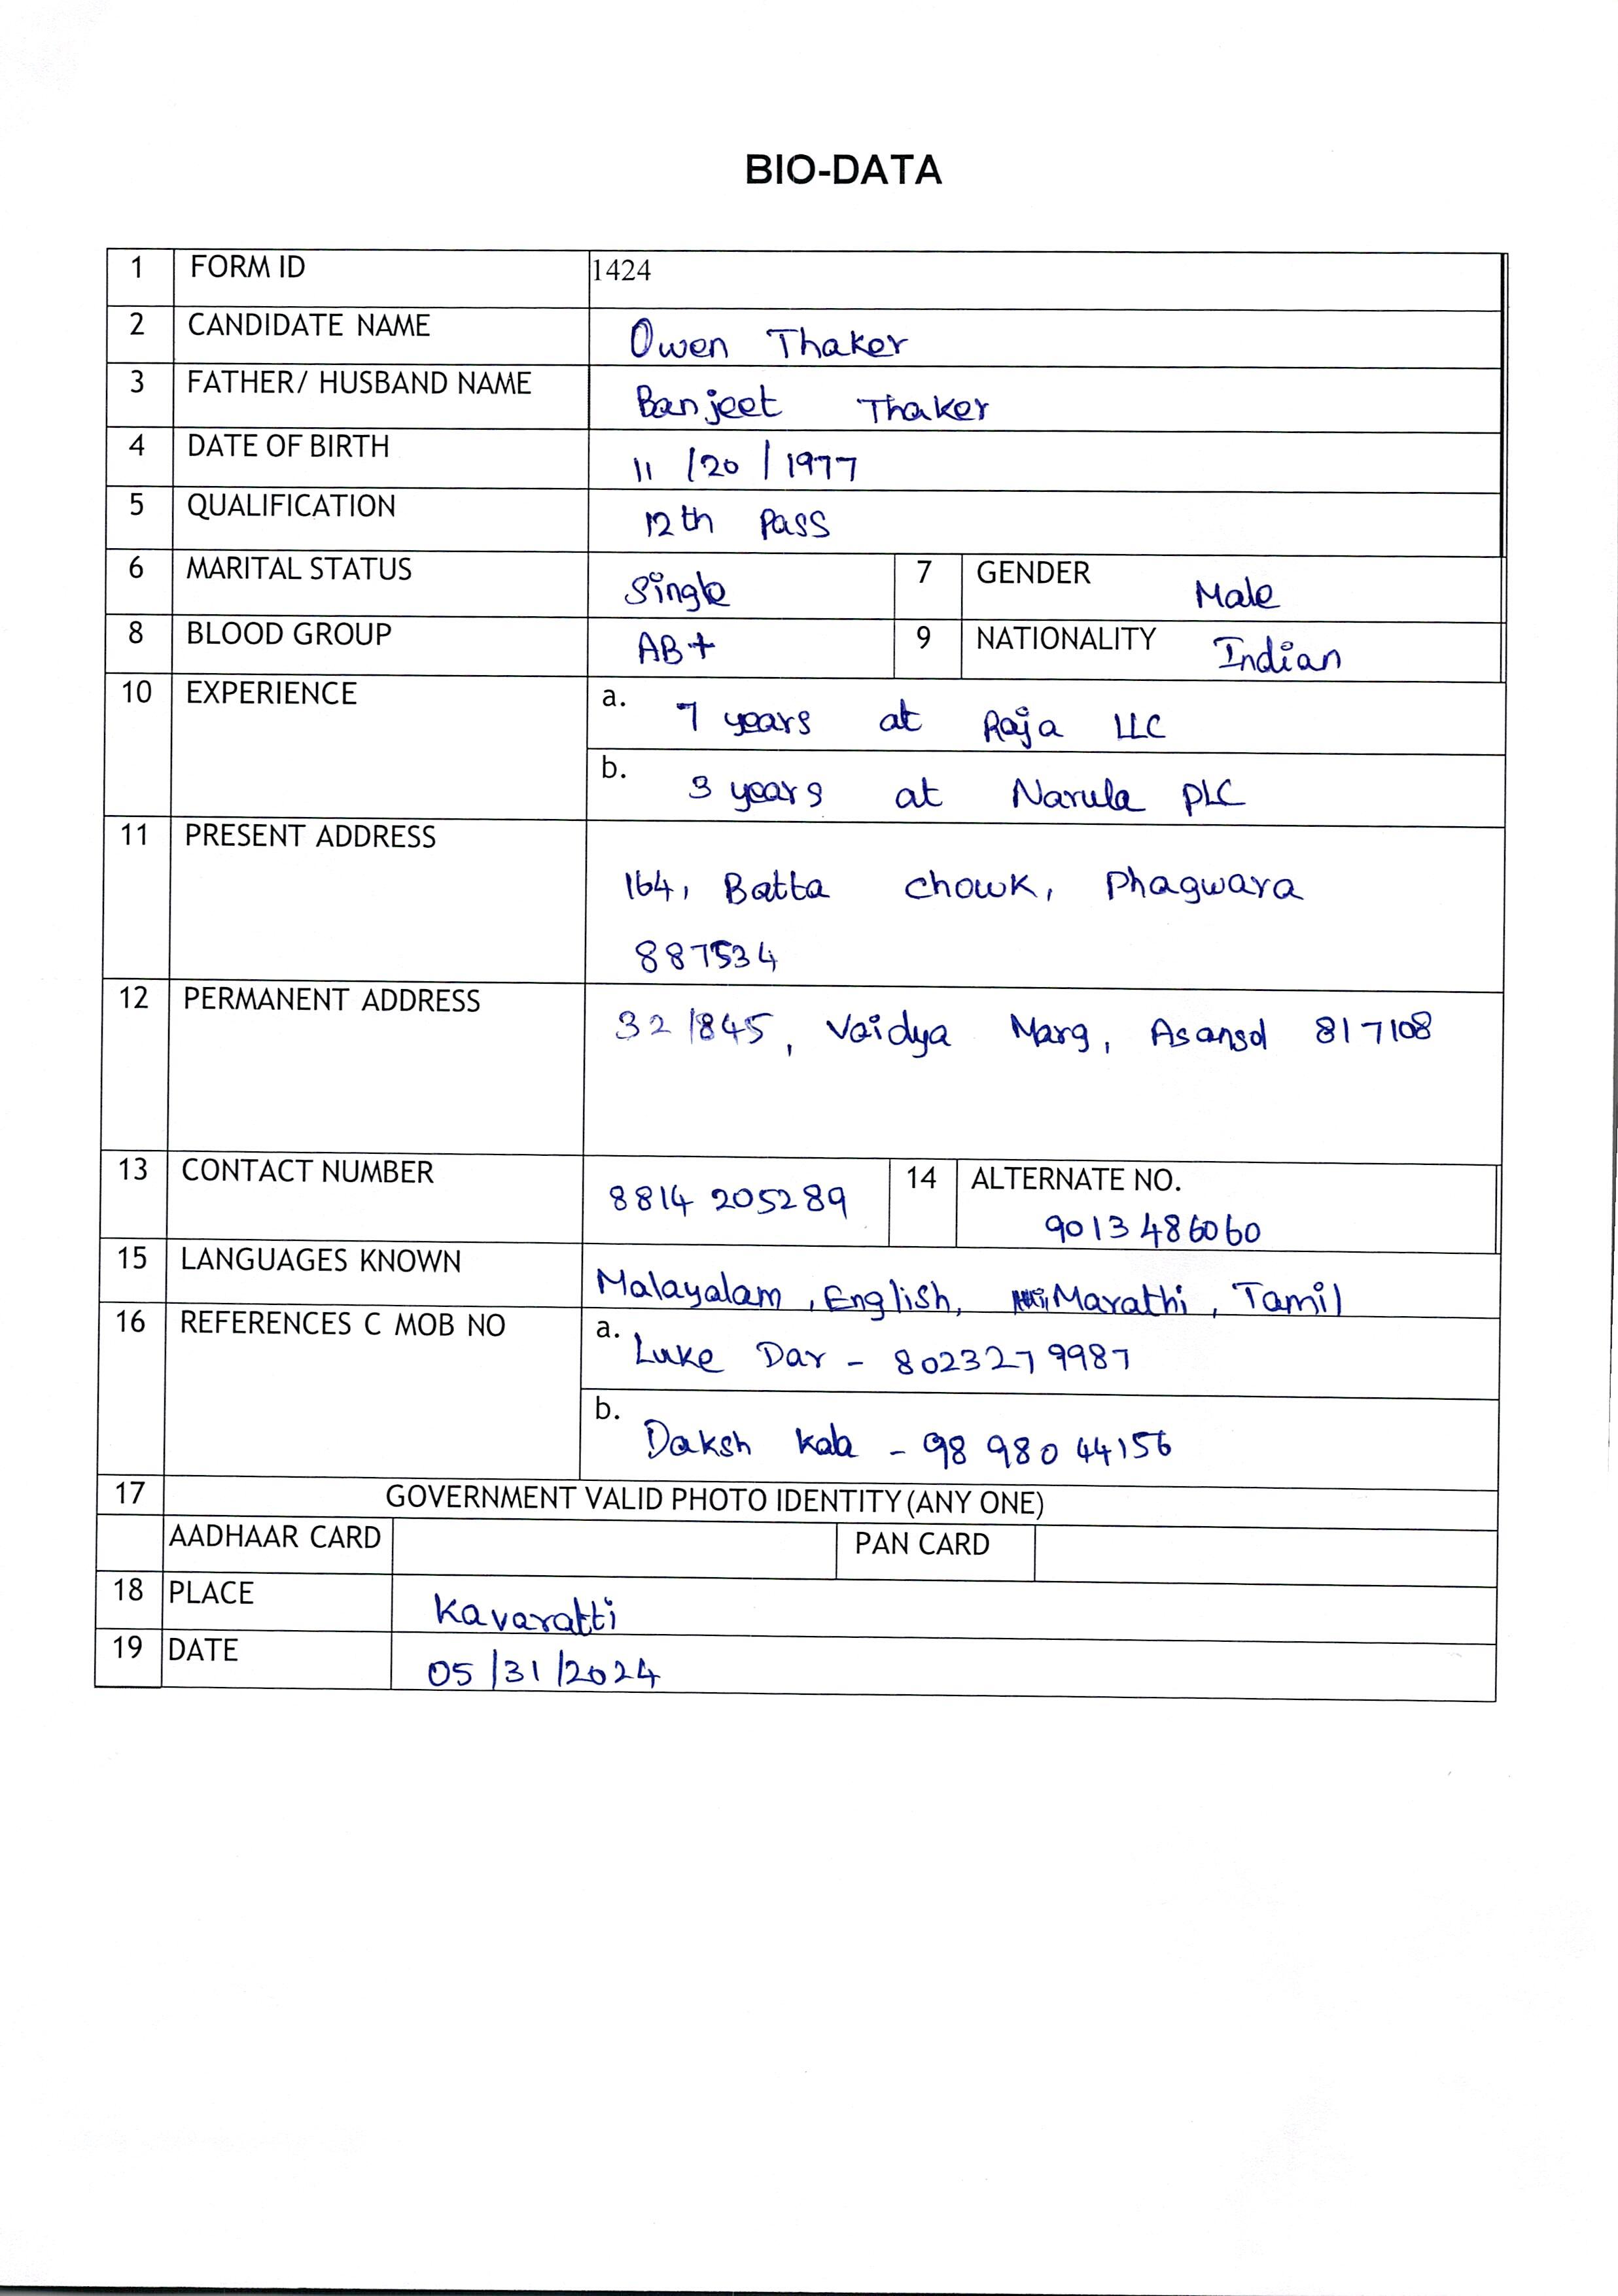 BIO-DATA
1 FORM ID 1424
2 CANDIDATE NAME Owen Thaker
3 FATHER/ HUSBAND NAME Banjeet Thaker
4 DATE OF BIRTH 11/20/1977
5 QUALIFICATION 12th Pass
6 MARITAL STATUS Single 7 GENDER Male
8 BLOOD GROUP AB+ 9 NATIONALITY Indian
10 EXPERIENCE a. 7 years at Raja LLC
b. 3 years at Narula PLC
11 PRESENT ADDRESS
164, Batta chowk, Phagwara
887534
12 PERMANENT ADDRESS 32/845, Vaidya Marg, Asansol 817108
13 CONTACT NUMBER 8814205289 14 ALTERNATE NO.
9013486060
15 LANGUAGES KNOWN Malayalam, English, Marathi, Tamil
16 REFERENCES C MOB NO a. Luke Dar - 8023279987
b. Daksh Kala - 9898044156
17 GOVERNMENT VALID PHOTO IDENTITY (ANY ONE)
AADHAAR CARD PAN CARD
18 PLACE Kavaratti
19 DATE 05/31/2024